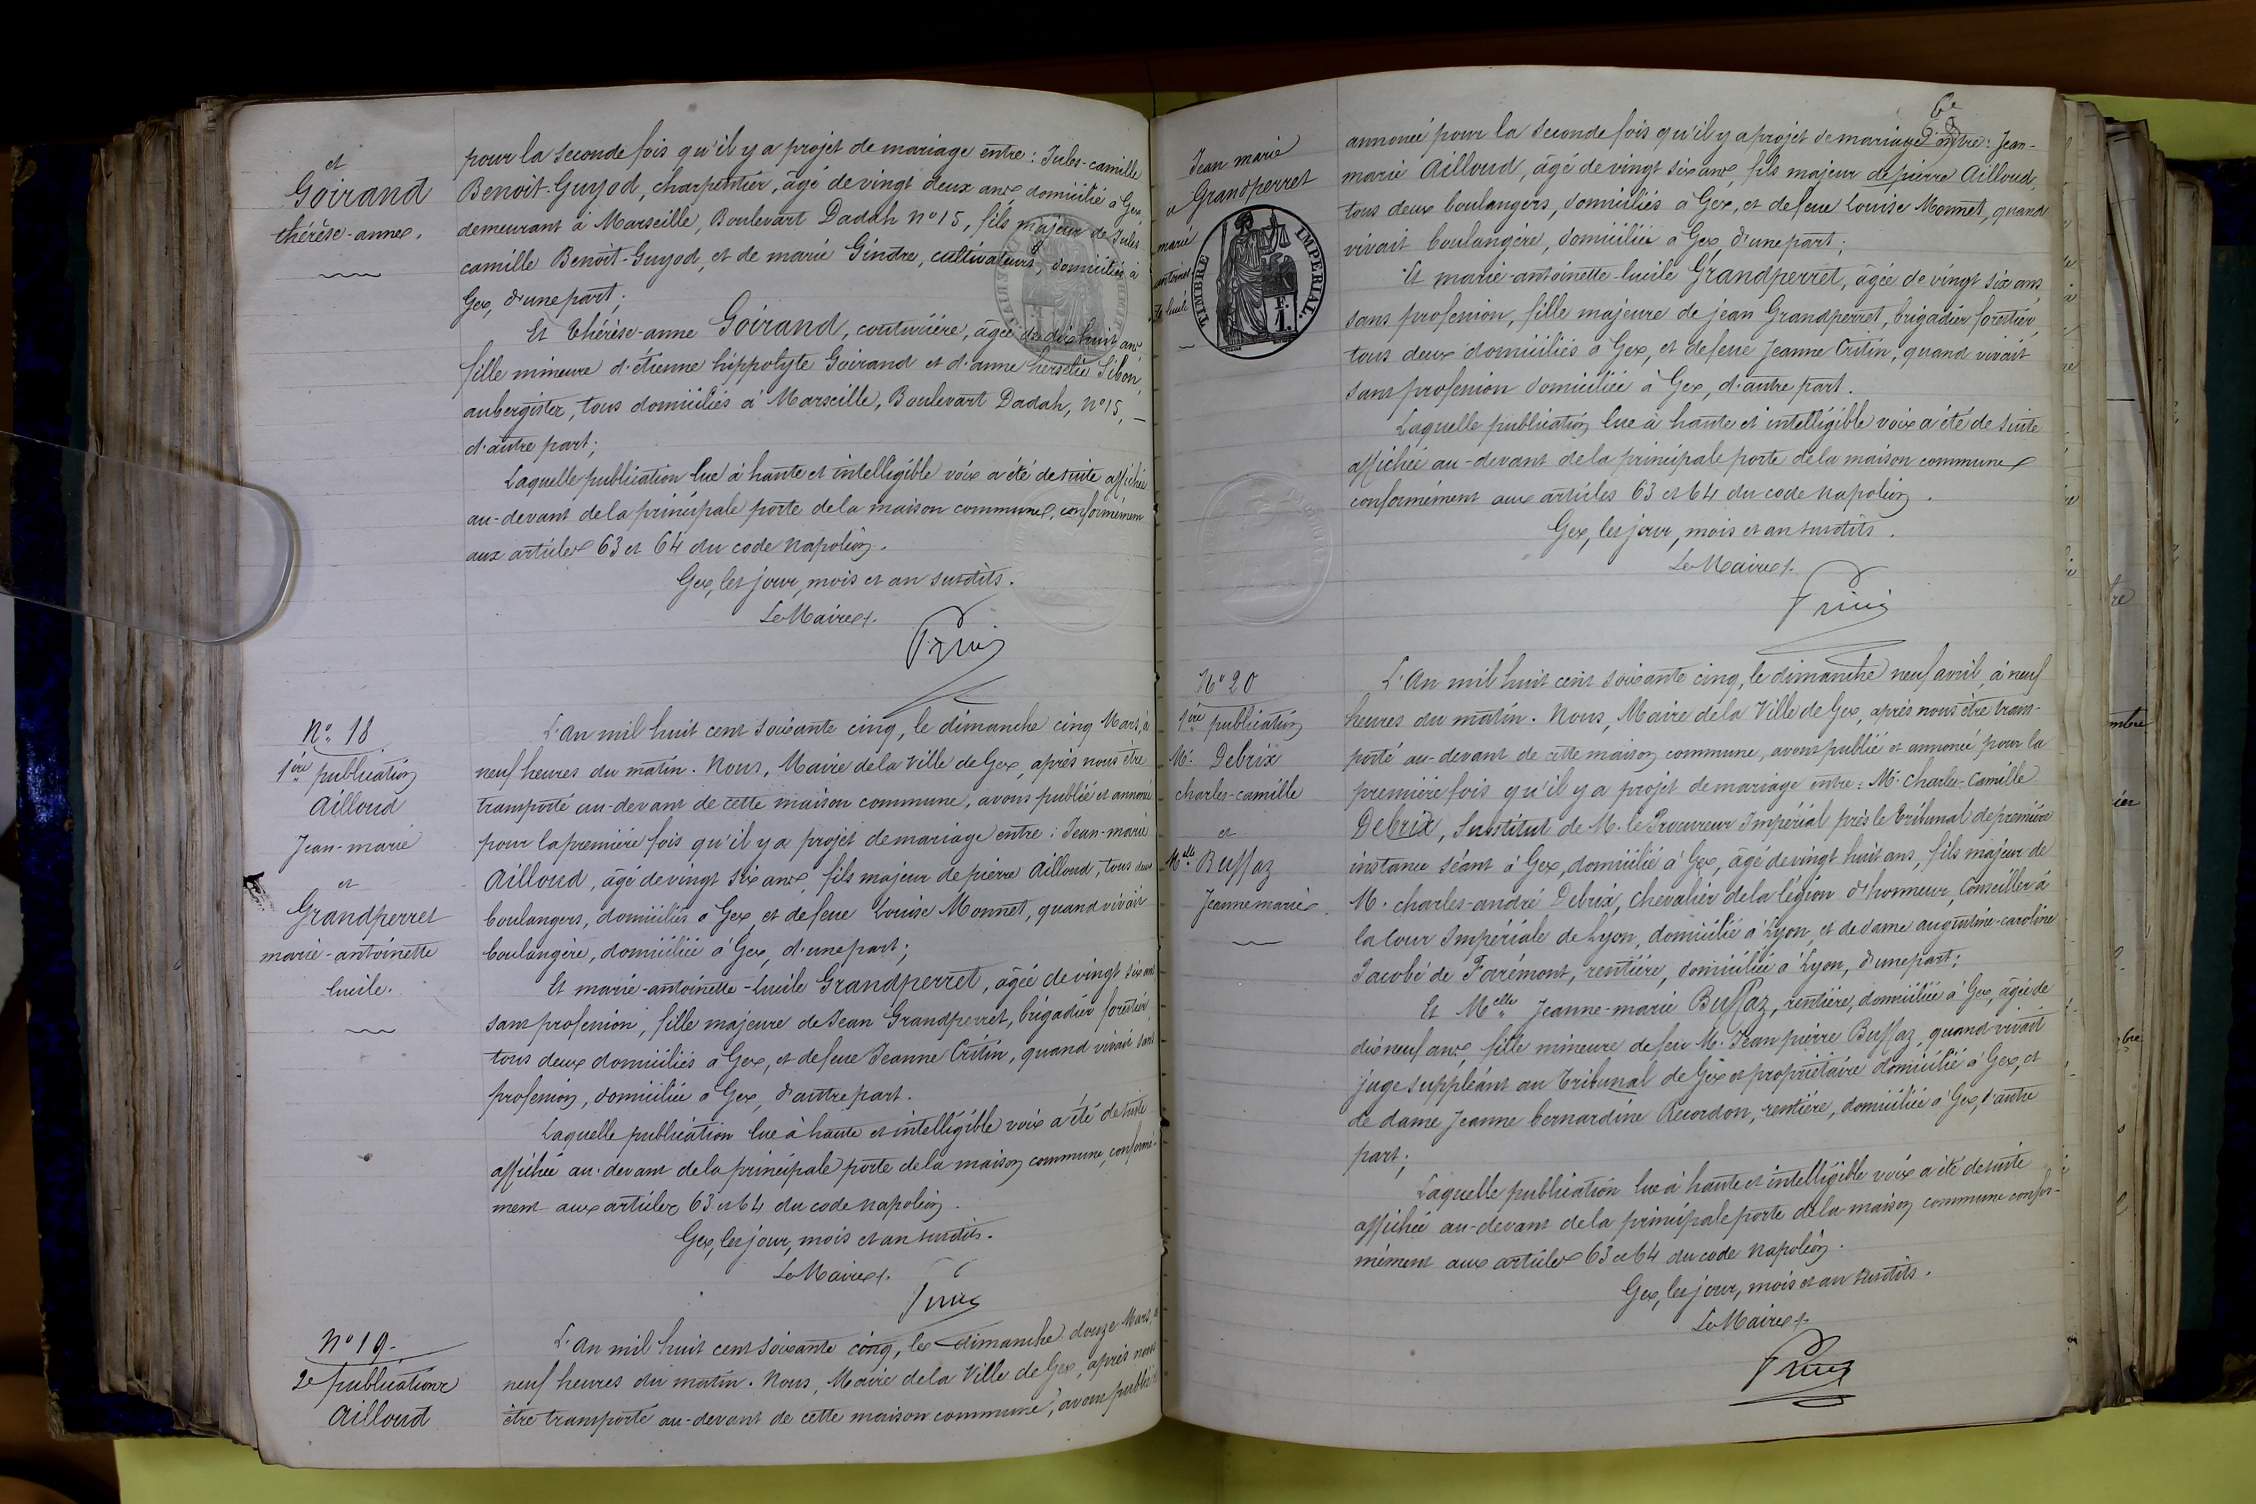 et
Goirand
thérèse-anne.
pour la seconde fois qu'il y a projet de mariage entre : Jules-camille
Benoit-Guyod, charpentier, âgé de vingt deux ans domicilié à Gex,
demeurant à Marseille, Boulevart Dadah nº 15, fils majeur de Jules
camille Benoit-Guyod, et de marie Gindre, cultivateurs, domiciliés à
Gex, d'une part;
Et thérèse-anne Goirand, couturière, âgée de dix huit ans
fille mineure d'étienne hippolyte Goirand et d'anne hersélie Sibon,
aubergistes, tous domiciliés à Marseille, Boulevart Dadah, nº 15, —
d'autre part;
Laquelle publication lue à haute et intelligible voix a été de suite affichée
au-devant de la principale porte de la maison commune, conformémen
aux articles 63 et 64 du code napoléon.
Gex, les jour, mois et an susdits.
Le Maire.
Nº 18
1ère publication
Ailloud
Jean-marie
et
Grandperret
marie-antoinette
lucile.
L'An mil huit cent soixante cinq, le dimanche cinq Mars, à
neuf heures du matin. Nous, Maire de la Ville de Gex, après nous être
transporté au-devant de cette maison commune, avons publié et annoncé
pour la première fois qu'il y a projet de mariage entre : Jean-marie
Ailloud, âgé de vingt six ans, fils majeur de pierre Ailloud, tous deux
boulangers, domiciliés à Gex, et de feue Louise Monnet, quand vivait
boulangère, domiciliée à Gex, d'une part;
Et marie-antoinette-lucile Grandperret, âgée de vingt six ans
sans profession, fille majeure de Jean Grandperret, brigadier forestier,
tous deux domiciliés à Gex, et de feue Jeanne Critin, quand vivait sans
profession, domiciliée à Gex, d'autre part.
Laquelle publication lue à haute et intelligible voix a été de suite
affichée au-devant de la principale porte de la maison commune, conformé-
ment aux articles 63 et 64 du code napoléon.
Gex, les jour, mois et an susdits.
Le Maire.
Nº 19.
2e publication
Ailloud
L'An mil huit cent soixante cinq, le dimanche douze Mars, à
neuf heures du matin. Nous, Maire de la Ville de Gex, après nous
être transporté au-devant de cette maison commune, avons publié
Jean marie
a Grandperret
marie
antoinet
te lucile
TIMBRE IMPERIAL
F.
1.
annoncé pour la seconde fois qu'il y a projet de mariage entre : Jean-
marie Ailloud, âgé de vingt six ans, fils majeur de pierre Ailloud,
tous deux boulangers, domiciliés à Gex, et de feue Louise Monnet, quand
vivait boulangère, domiciliée à Gex, d'une part;
Et marie-antoinette-lucile Grandperret, âgée de vingt six ans
sans profession, fille majeure de jean Grandperret, brigadier forestier,
tous deux domiciliés à Gex, et de feue Jeanne Critin, quand vivait
sans profession domiciliée à Gex, d'autre part.
Laquelle publication lue à haute et intelligible voix a été de suite
affichée au-devant de la principale porte de la maison commune
conformément aux articles 63 et 64 du code napoléon.
Gex, les jour, mois et an susdits.
Le Maire.
Nº 20
1ère publication
Mr. Debrix
charles-camille
et
Melle Buffaz
Jeanne marie.
L'An mil huit cent soixante cinq, le dimanche neuf avril, à neuf
heures du matin. Nous, Maire de la Ville de Gex, après nous être trans-
porté au-devant de cette maison commune, avons publié et annoncé pour la
première fois qu'il y a projet de mariage entre : Mr. charles-Camille
Debrix, Substitut de M. le Procureur Impérial près le tribunal de première
instance séant à Gex, domicilié à Gex, âgé de vingt huit ans, fils majeur de
M. charles-andré Debrix, Chevalier de la légion d'honneur, Conseiller à
la Cour Impériale de Lyon, domicilié à Lyon, et de dame augustine-caroline
Jacobé de Farémont, rentière, domiciliée à Lyon, d'une part;
Et Melle Jeanne-marie Buffaz, rentière, domiciliée à Gex, âgée de
dix neuf ans, fille mineure de feu M. Jean pierre Buffaz, quand vivait
juge suppléant au tribunal de Gex et propriétaire domicilié à Gex, et
de dame Jeanne bernardine Recordon, rentière, domiciliée à Gex, d'autre
part;
Laquelle publication lue à haute et intelligible voix a été de suite
affichée au-devant de la principale porte de la maison commune confor-
mément aux articles 63 et 64 du code napoléon.
Gex, les jour, mois et an susdits.
Le Maire.